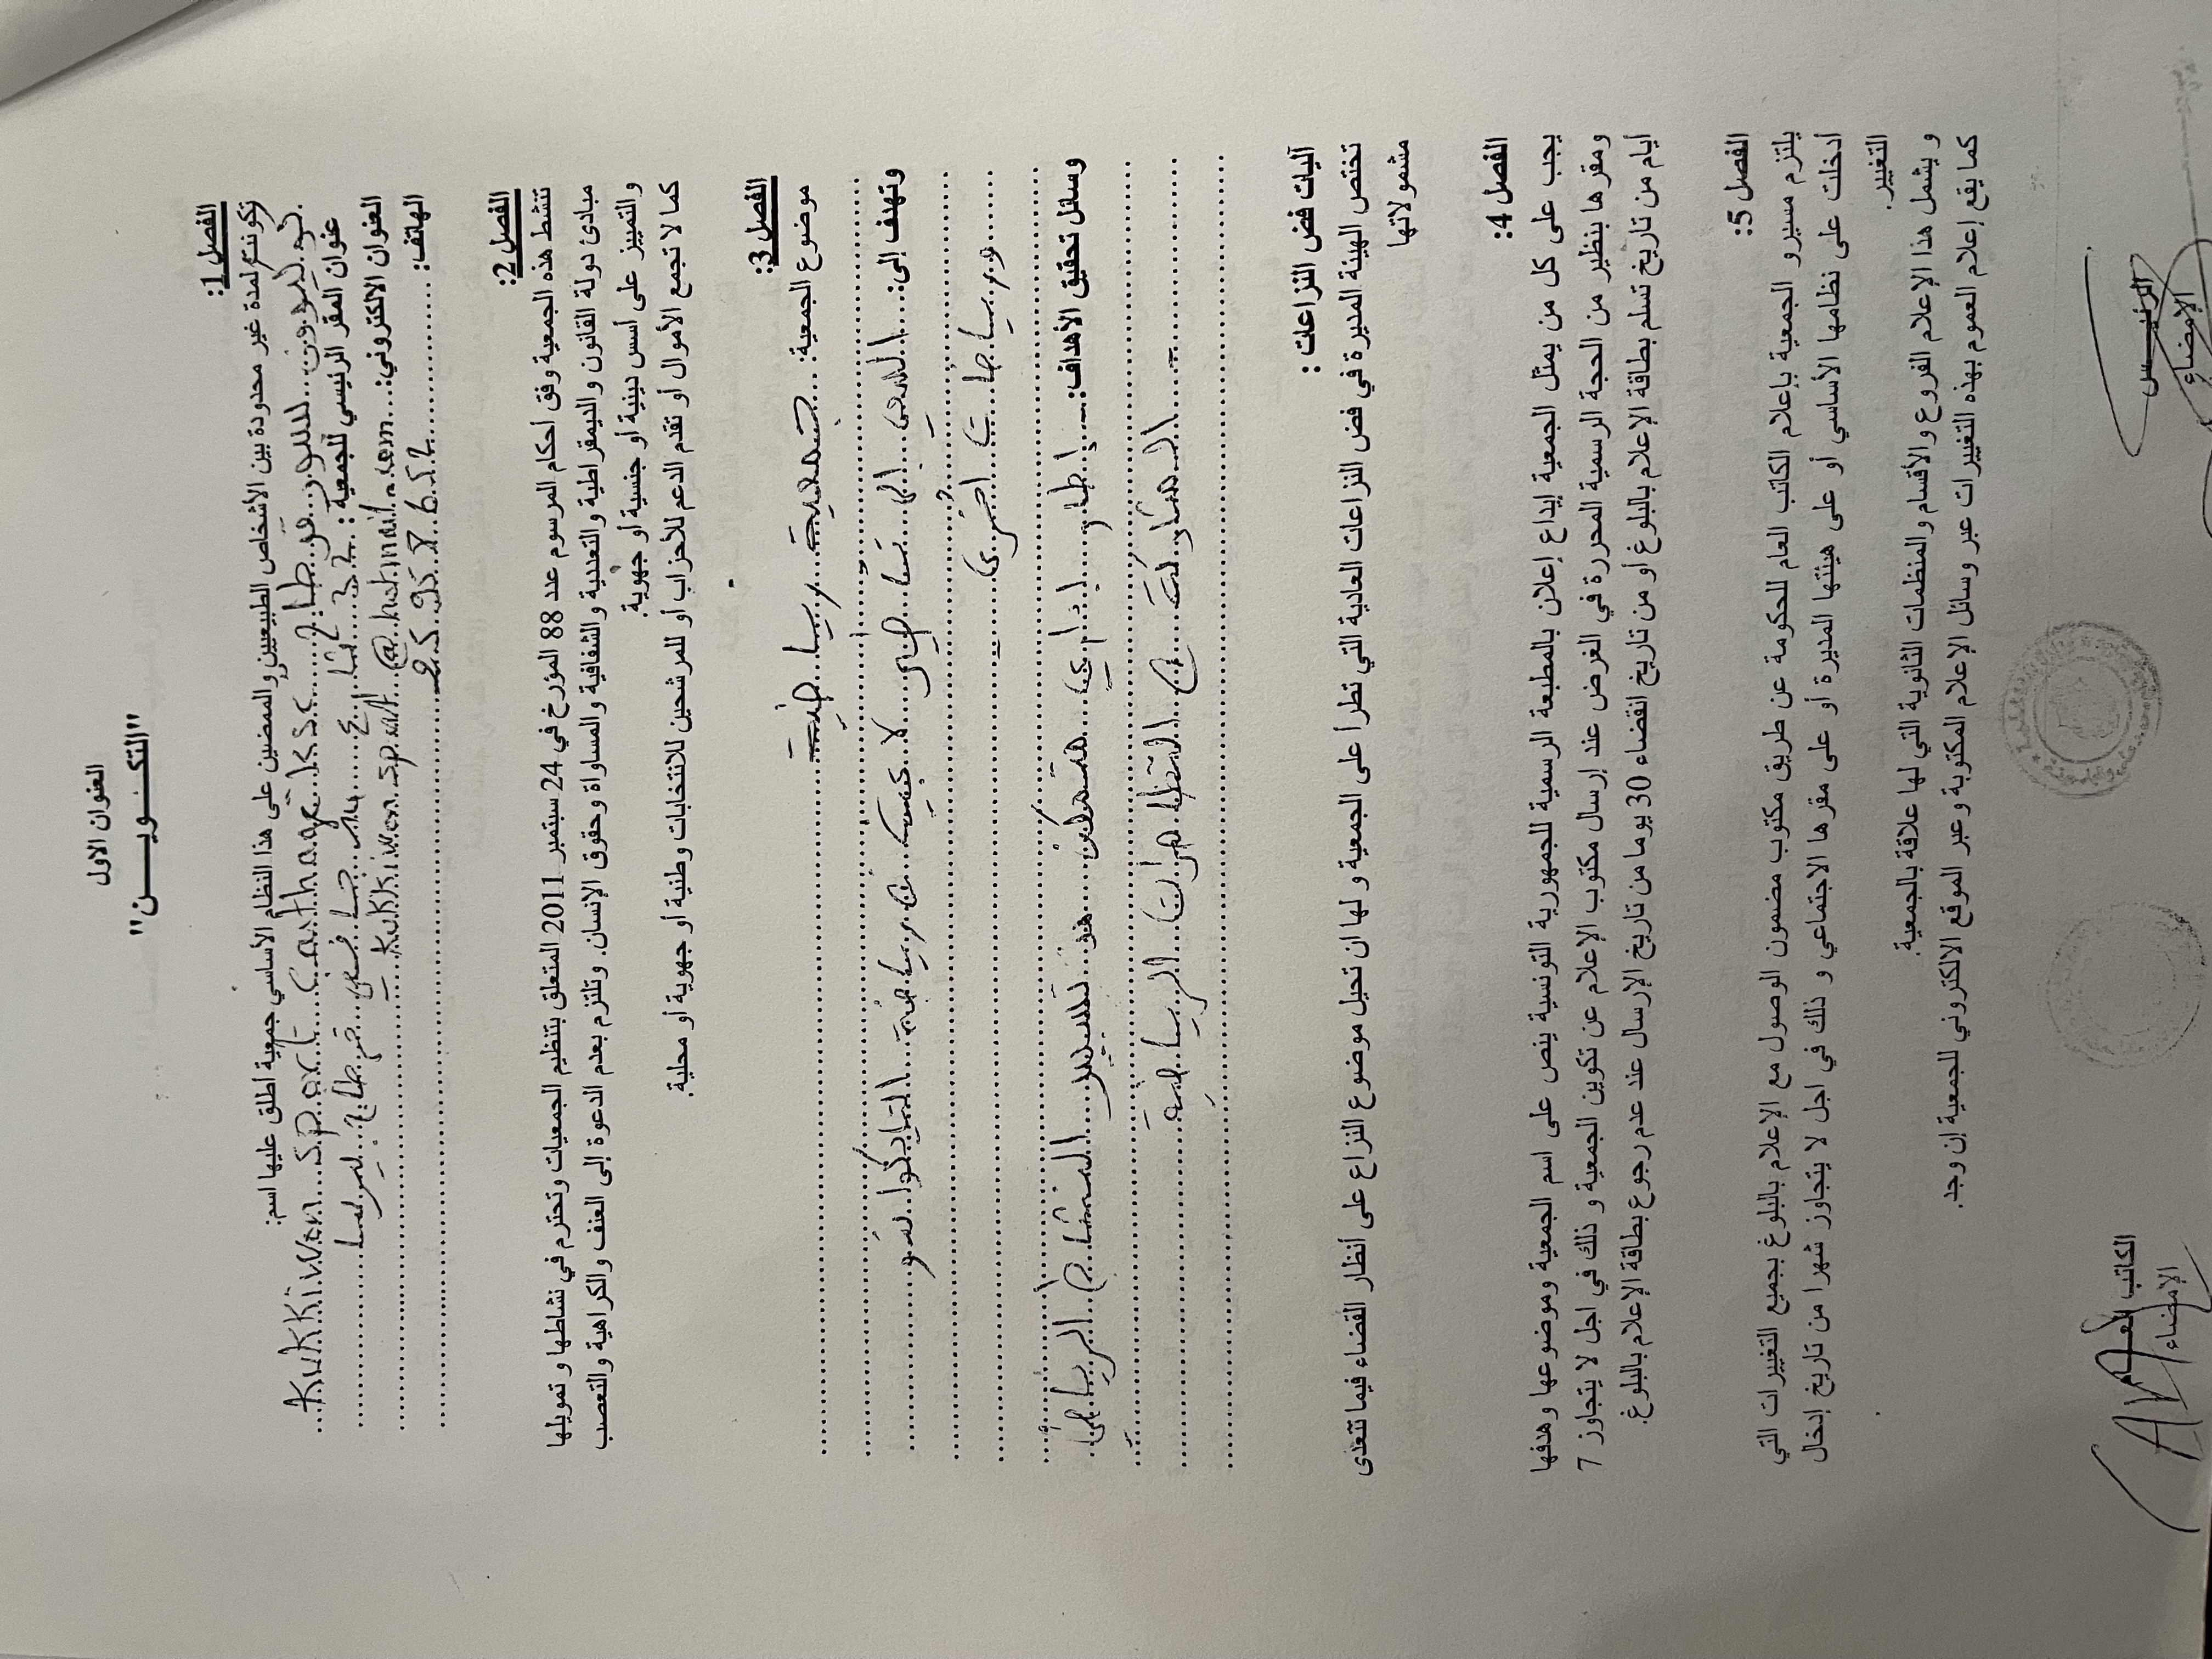 العنوان الاول
"التكـــنـــويـــــن"
الفصل 1:
تكونت لمدة غير محدودة بين الأشخاص الطبيعيين والممضين على هذا النظام الأساسي جمعية اطلق عليها اسم:
Kukkiwon Sport Carthage KSC
عنوان المقر الرئيسي للجمعية: 32
العنوان الالكتروني: Kukkiwon.sport@hotmail.com
الهاتف:
الفصل 2:
تنشط هذه الجمعية وفق احكام المرسوم عدد 88 المؤرخ في 24 سبتمبر 2011 المتعلق بتنظيم الجمعيات وتحترم في نشاطها و تمويلها
مبادئ دولة القانون والديمقراطية والتعددية والشفافية والمساواة وحقوق الإنسان. وتلتزم بعدم الدعوة إلى العنف والكراهية والتعصب
والتمييز على أسس دينية أو جنسية أو جهوية.
كما لا تجمع الأموال أو تقدم الدعم للأحزاب أو للمرشحين للانتخابات وطنية أو جهوية أو محلية.
الفصل 3:
موضوع الجمعية: جمعية رياضية
وتهدف إلى: السعي إلى
رياضة التايكواندو
ورياضات أخرى
وسائل تحقيق الأهداف: إطار إداري
الرياضي
المشاركة في التظاهرات الرياضية
آليات فض النزاعات :
تختص الهيئة المديرة في فض النزاعات العادية التي تطرأ على الجمعية و لها ان تحيل موضوع النزاع على أنظار القضاء فيما تتعدى
مشمولاتها
الفصل 4:
يجب على كل من يمثل الجمعية إيداع إعلان بالمطبعة الرسمية للجمهورية التونسية ينص على اسم الجمعية وموضوعها وهدفها
ومقرها بنظير من الحجة الرسمية المحررة في الغرض عند إرسال مكتوب الإعلام عن تكوين الجمعية و ذلك في اجل لا يتجاوز 7
أيام من تاريخ تسلم بطاقة الإعلام بالبلوغ أو من تاريخ انقضاء 30 يوما من تاريخ الإرسال عند عدم رجوع بطاقة الإعلام بالبلوغ.
الفصل 5:
يلتزم مسيرو الجمعية بإعلام الكاتب العام للحكومة عن طريق مكتوب مضمون الوصول مع الإعلام بالبلوغ بجميع التغييرات التي
أدخلت على نظامها الأساسي أو على هيئتها المديرة أو على مقرها الاجتماعي و ذلك في اجل لا يتجاوز شهرا من تاريخ إدخال
التغيير.
و يشمل هذا الإعلام الفروع والأقسام والمنظمات الثانوية التي لها علاقة بالجمعية.
كما يقع إعلام العموم بهذه التغييرات عبر وسائل الإعلام المكتوبة وعبر الموقع الالكتروني للجمعية إن وجد.
الرئيـــس
الإمضاء
الكاتب العـــام
الإمضاء